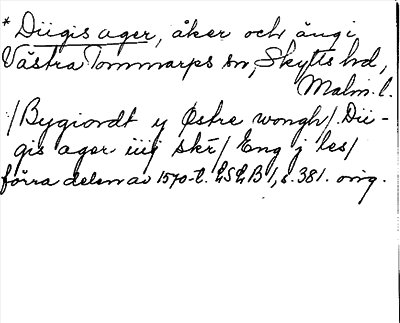 * Diigis ager, åker och äng i
Västra Tommarps sn, Skytts hd,
Malm. l.
/Bygiordt y Østre wongh/ Dii-
gis ager iiij skr/ Eng j les/
förra delen av 1570-t. LSLB 1, s. 381. orig.